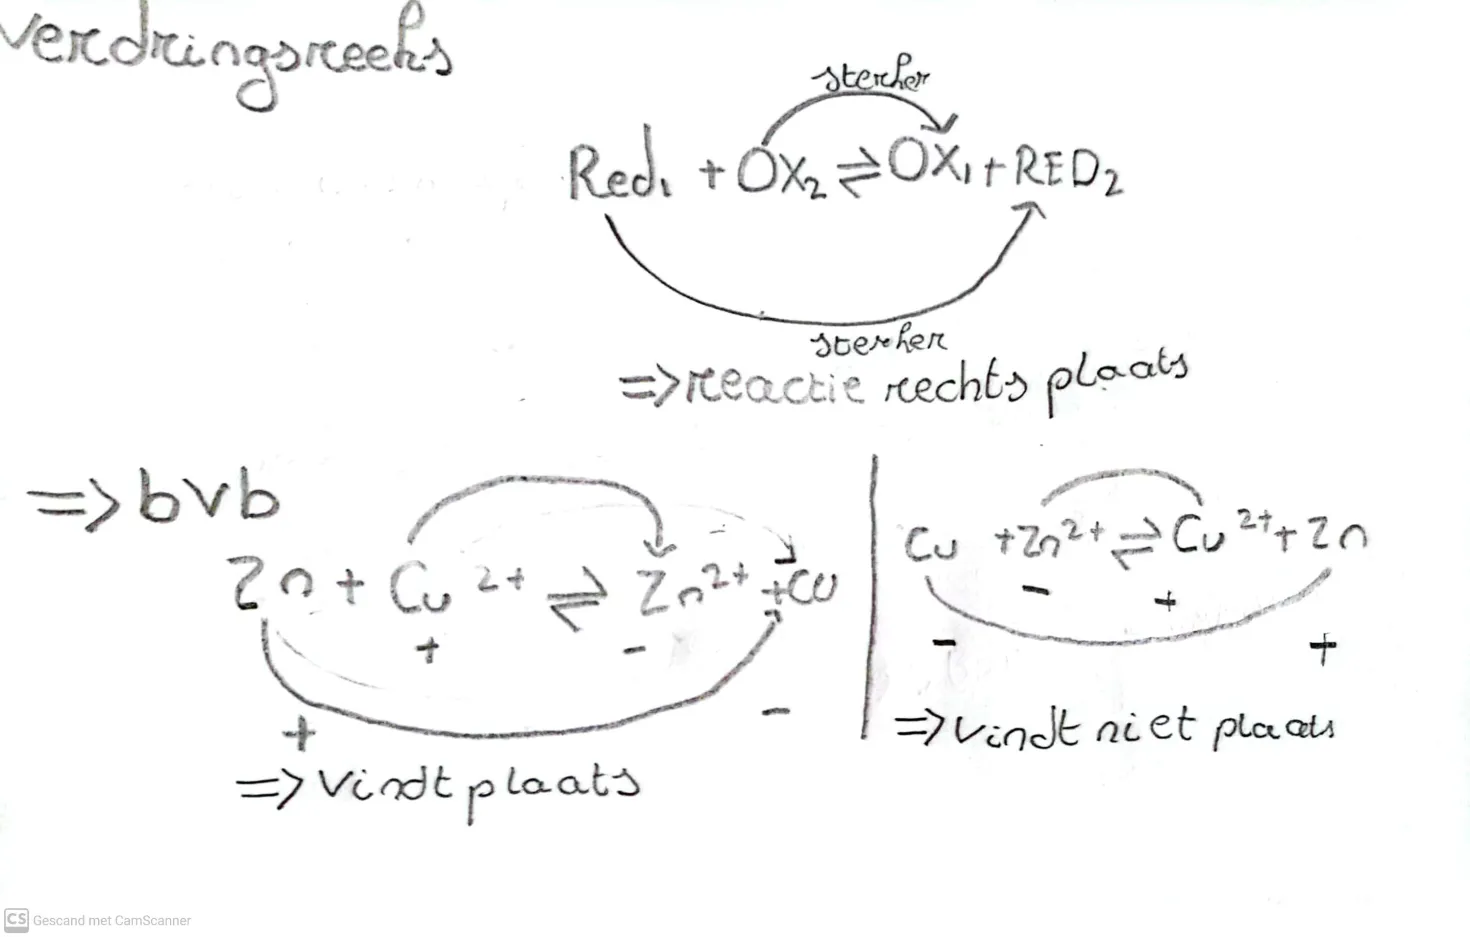 verdringsreeks
sterker
Red₁ + OX₂ ⇌ OX₁ + RED₂
sterker
=> reactie rechts plaats
=> bvb
Zn + Cu²⁺ ⇌ Zn²⁺ + Cu
+ -
+ -
=> vindt plaats
Cu + Zn²⁺ ⇌ Cu²⁺ + Zn
- +
- +
=> vindt niet plaats
CS Gescand met CamScanner